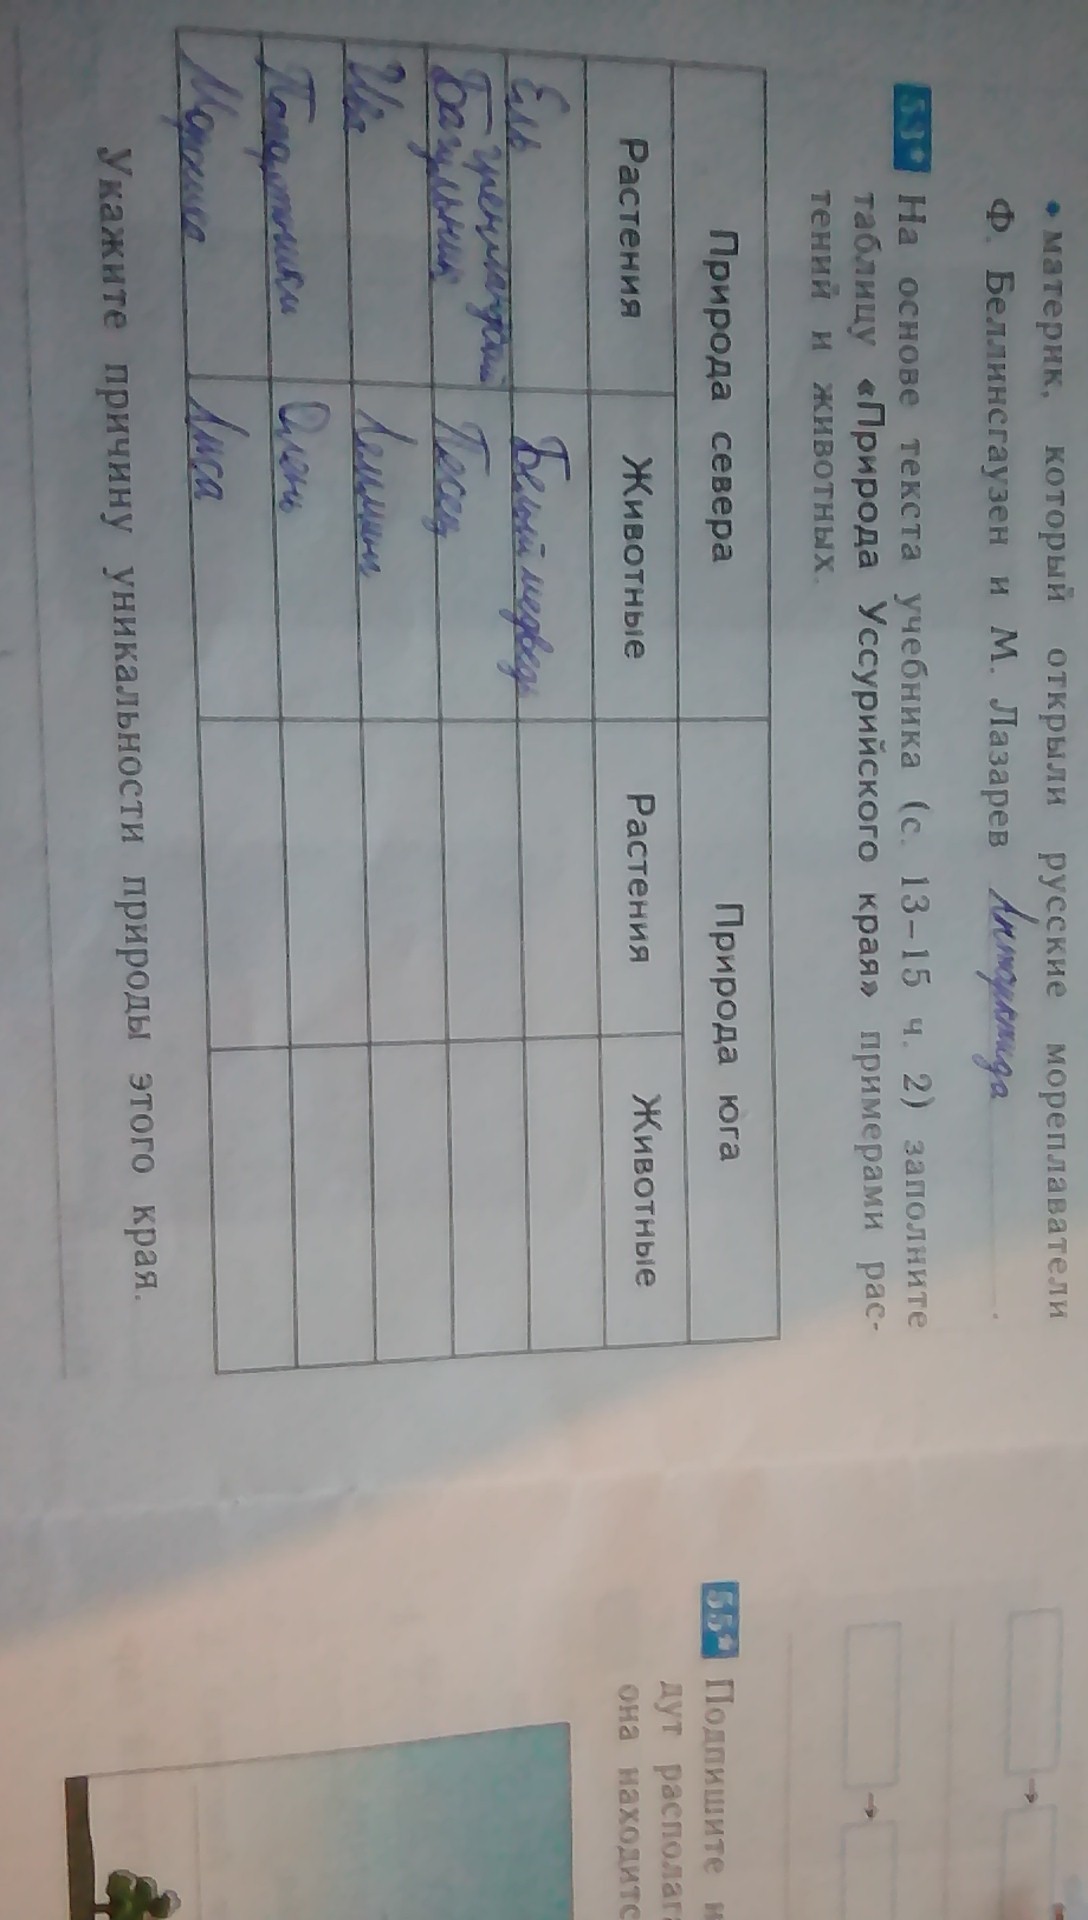 • материк, который открыли русские мореплаватели
Ф. Беллинсгаузен и М. Лазарев Антарктида.
53* На основе текста учебника (с. 13–15 ч. 2) заполните
таблицу «Природа Уссурийского края» примерами рас-
тений и животных.
Природа севера Природа юга
Растения Животные Растения Животные
Ель Белый медведь
Багульник гренландский Песец
Ива Лемминг
Папоротники Олень
Морошка Лиса
Укажите причину уникальности природы этого края.
55* Подпишите н
дут располага
она находитс